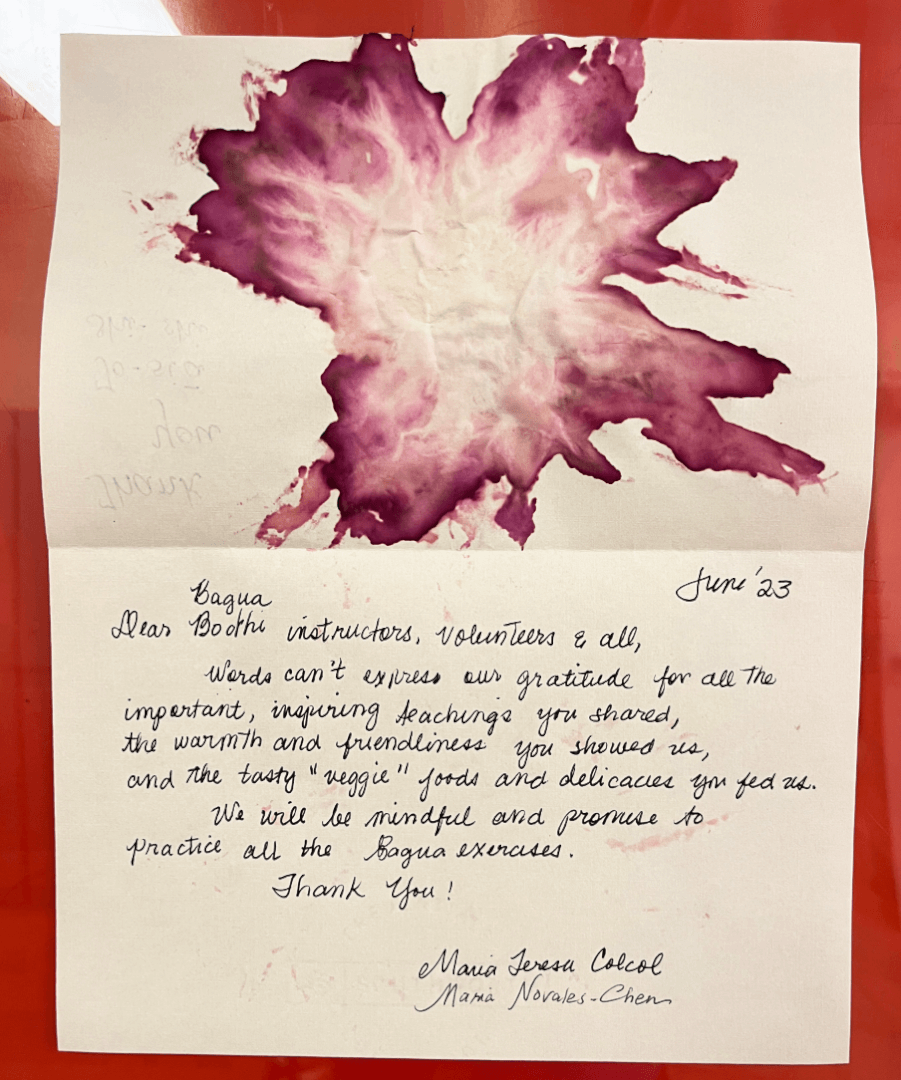 Thank
you
To-siā
Shi-shi
June '23
Bagua
Dear Bodhi instructors, volunteers & all,
Words can't express our gratitude for all the
important, inspiring teachings you shared,
the warmth and friendliness you showed us,
and the tasty "veggie" foods and delicacies you fed us.
We will be mindful and promise to
practice all the Bagua exercises.
Thank You!
Maria Teresa Colcol
Maria Novales-Chen